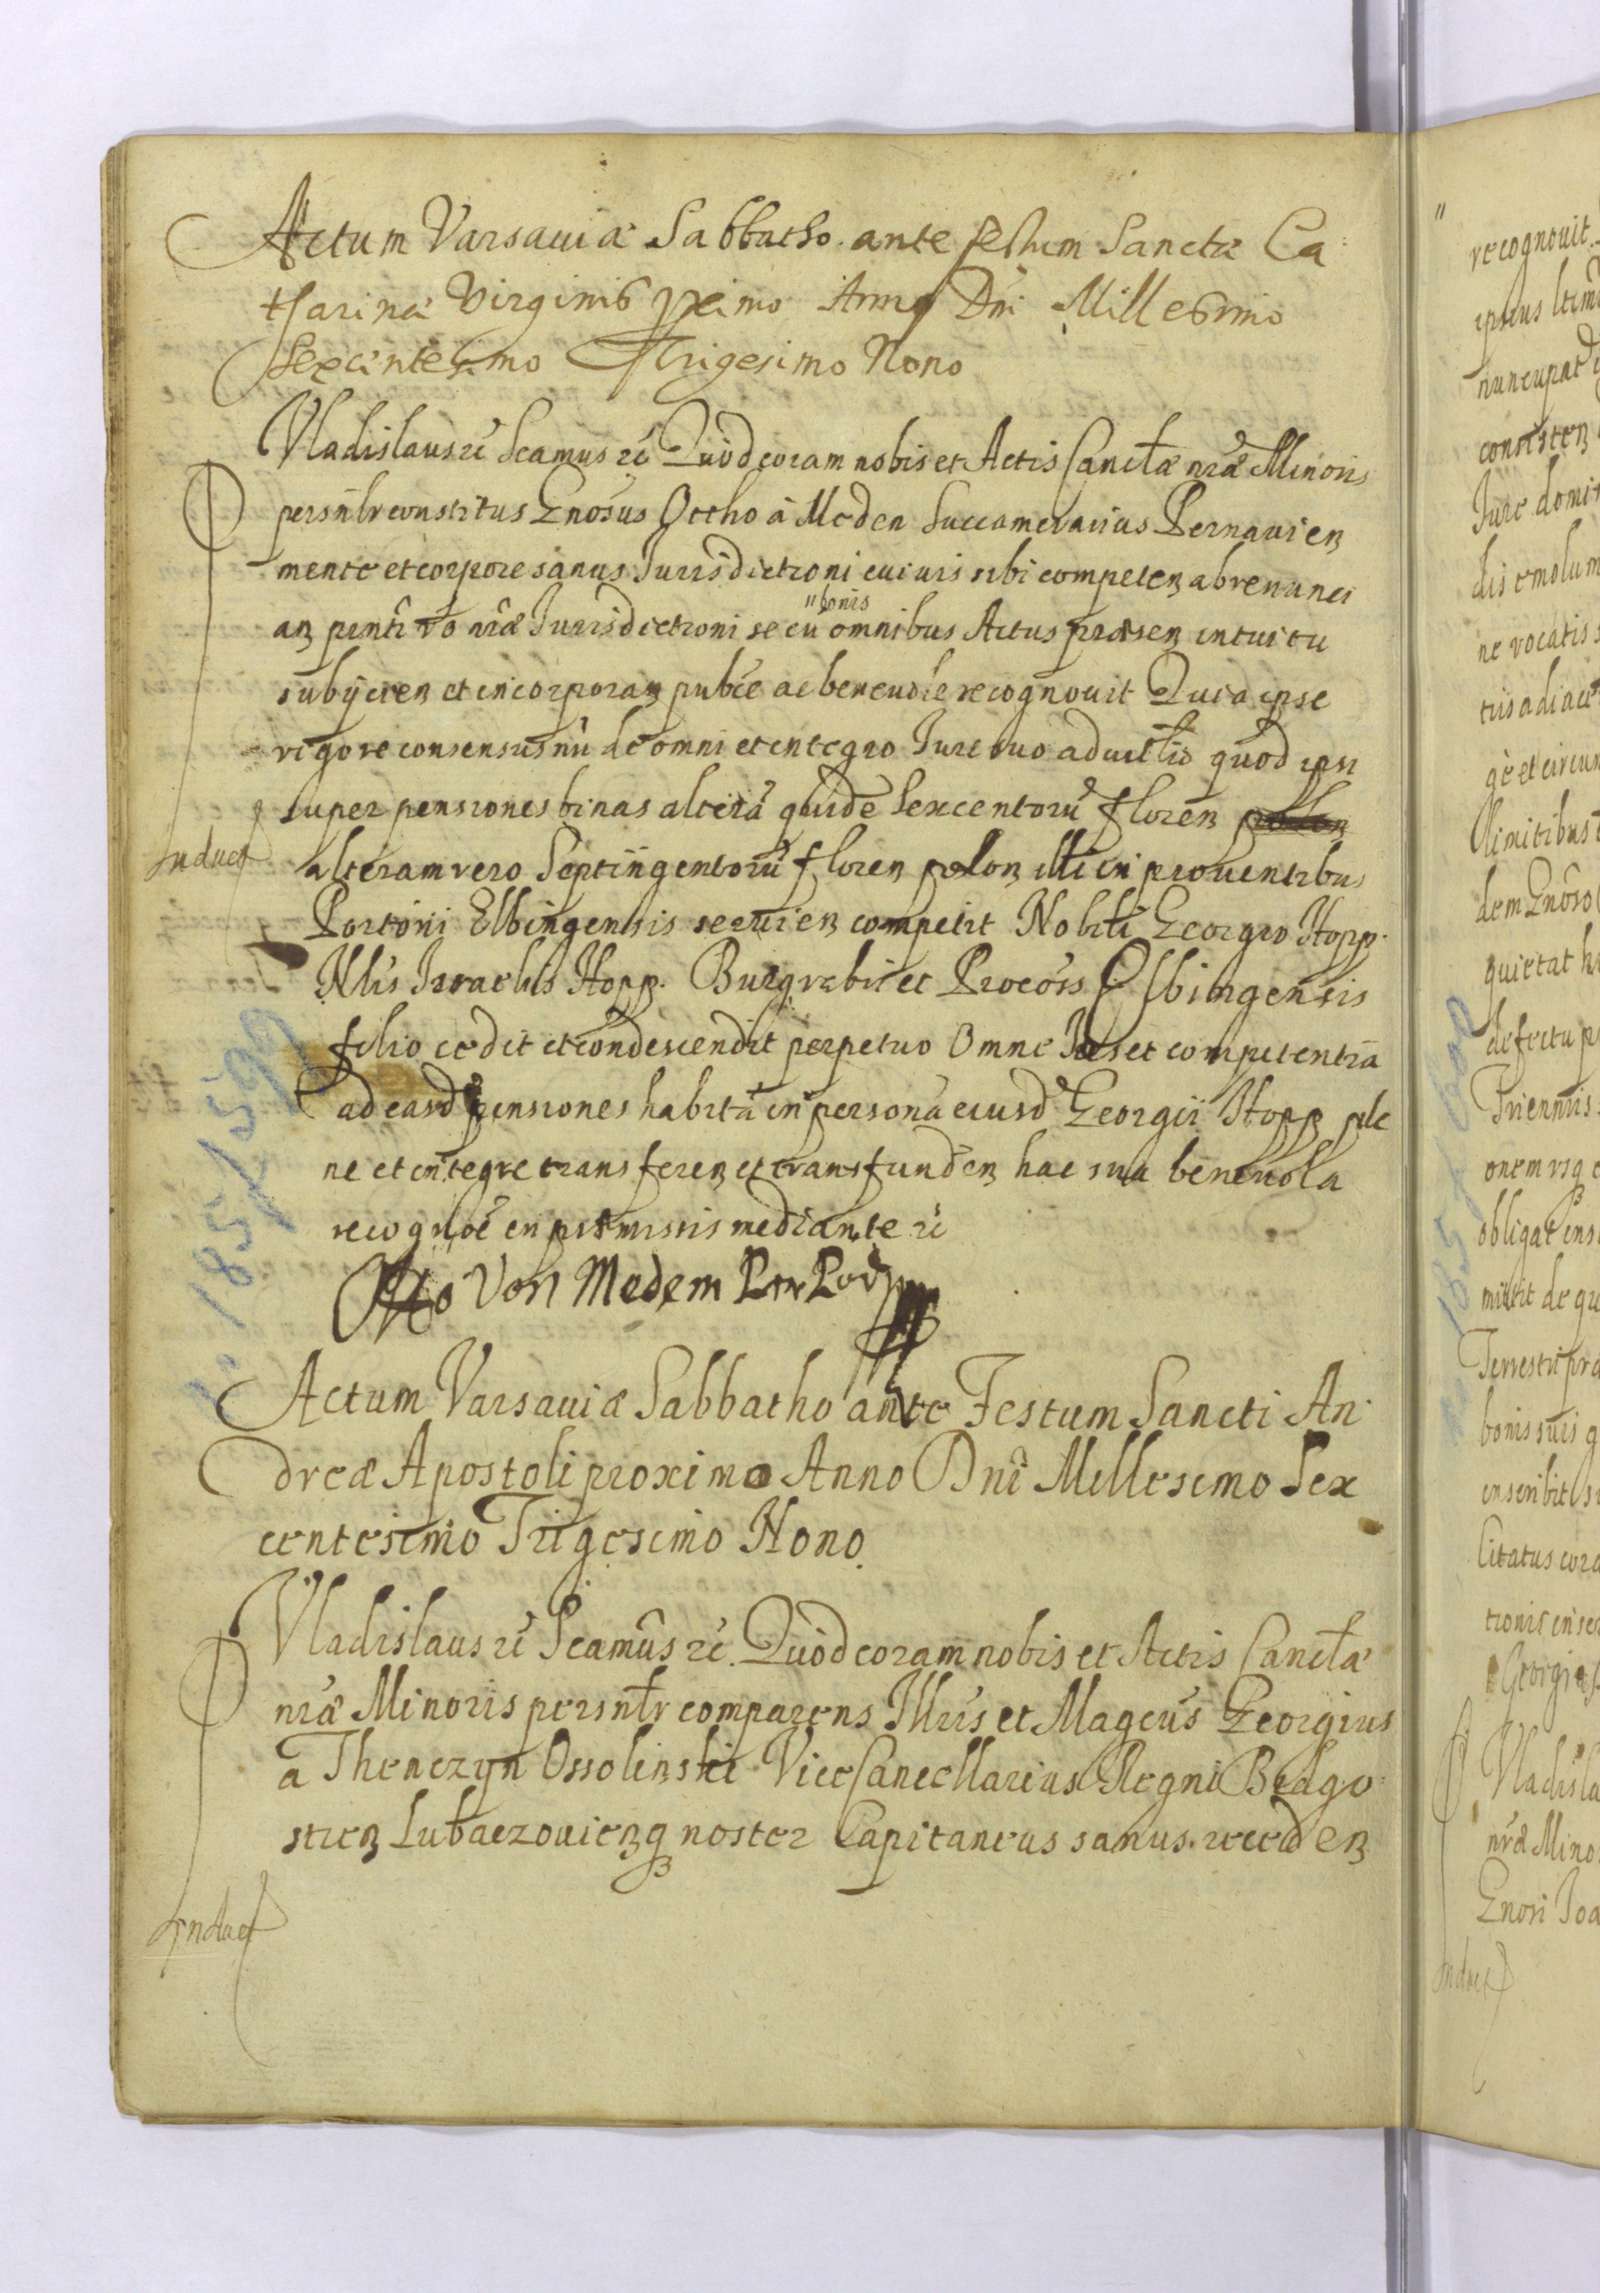 Actum Varsauiæ Sabbatho ante festum Sanctæ Ca
tharinæ Virginis pximo Anno Dni Millesimo
Sexcentesimo Trigesimo Nono
Vladislaus rc Seamus rc Quod coram nobis et Actis Cancłæ nræ Minoris
persnlr constitus Gnosus Ottho á Meden Succamerarius Pernauien
mente et corpore sanus Jurisdictioni cuiuis sibi competen abrenunci
an pnti vo nræ Jurisdictioni se cu "bonis omnibus Actus præsen intuitu
subÿcien et incorporan publce ac beneuole recognouit Quia ipse
vigore consensus nri de omni et integro Jure suo aduitłio quod ipsi
super pensiones binas alterã quidẽ Sexcentorũ floren
alteram vero Septingentorũ floren polon illi in prouentibus
Portorii Elbingensis seruien competit Nobili Georgio Hopp.
Nlis Israelis Hopp. Burgrabii et Procons Elbingensis
filio cedit et condescendit perpetuo Omne Jus et competentiã
ad easd pensiones habitã in personã eiusd Georgii Hopp ple
ne et integre transferen et transfunden hac sua beneuola
recognoẽ in præmissis mediante rc
Otto Von Medem
Actum Varsauiæ Sabbatho ante Festum Sancti An
dreæ Apostoli proximo Anno Dni Millesimo Sex
centesimo Trigesimo Nono
Vladislaus rc Seamus rc. Quod coram nobis et Actis Cancłæ
nræ Minoris persnłr comparens Illris et Magcus Georgius
a Thenczyn Ossolinski ViceCancellarius Regni Bidgo
stien Lubaczouienq noster Capitaneus sanus. receden
Induct
Induct
185 / 599
recognouit
ipsius
nuncupat
consisten
Jure domi
dis emolum
ne vocatis
tiis adiace
gè et circum
limitibus
dem Gnoso
quietat
defectu
Triennis
onem vsq
obligat ins
mittit de qu
Terrestri
bonis suis
inscribit
Citatus cora
tionis
Georgi
Vladisla
nræ Mino
Gnosi Joa
Induct